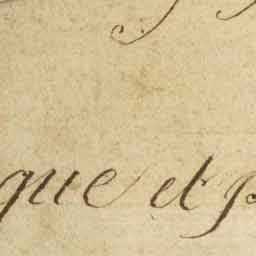 que et p